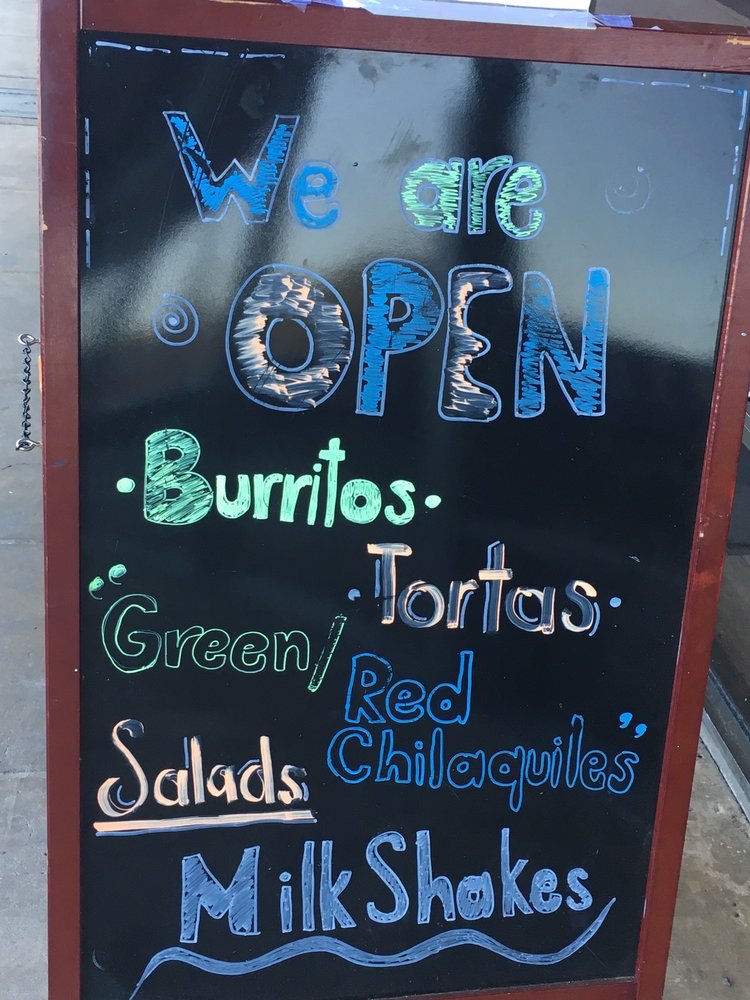 We are
OPEN
·Burritos·
·Tortas·
"Green/
Red
Chilaquiles"
Salads
MilkShakes